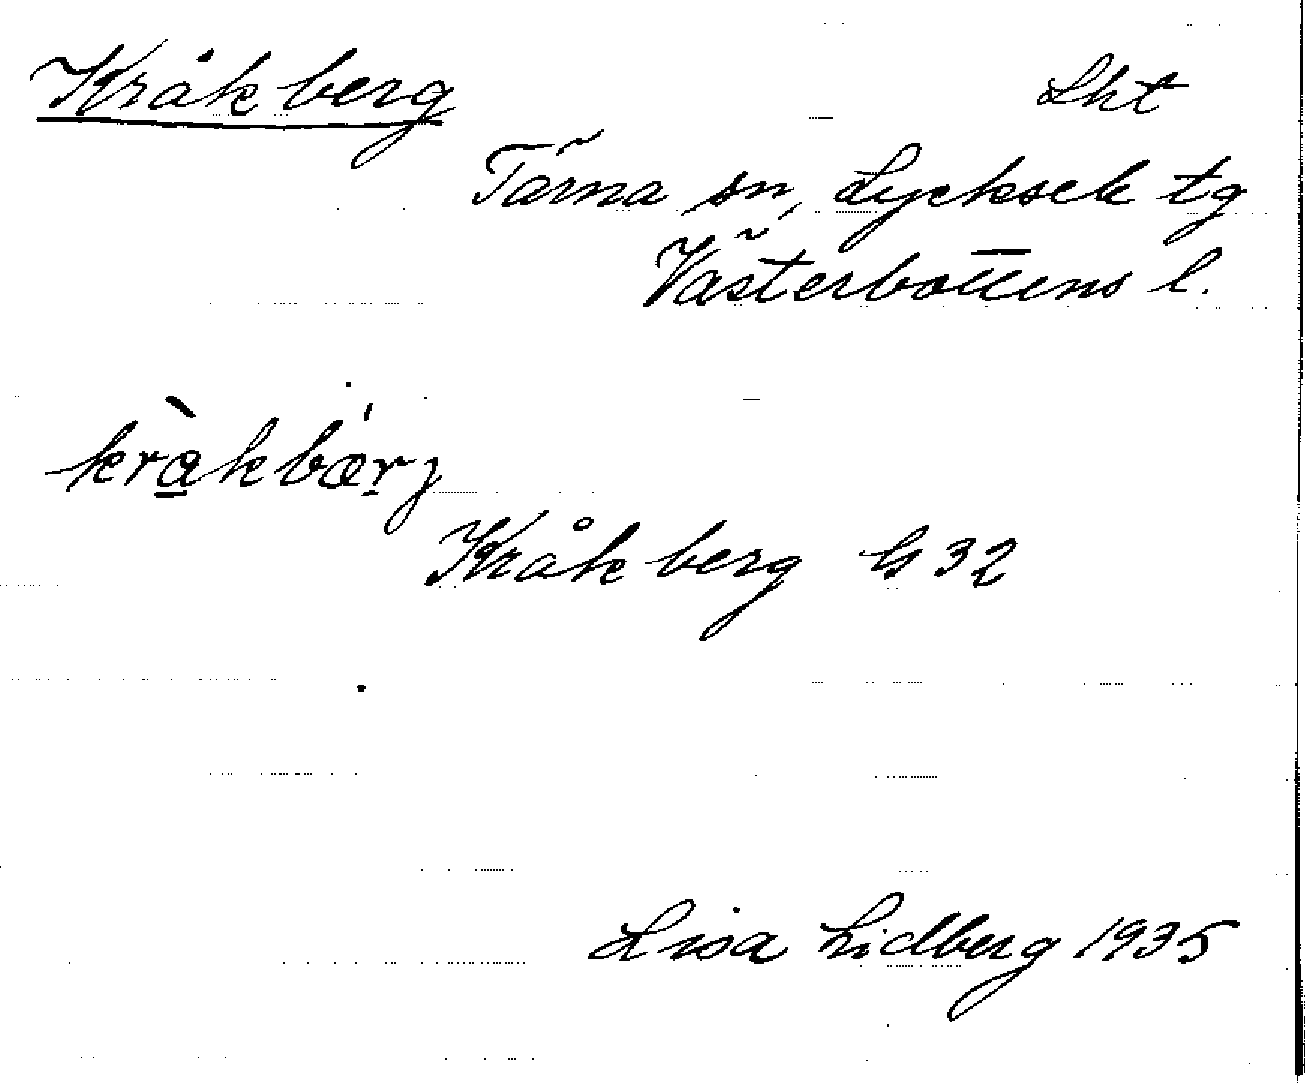 Kråkberg Lht
Tärna sn, Lycksele tg
Västerbottens l.
kràkbæ̍rj
Kråkberg G 32
Lisa Lidberg 1935